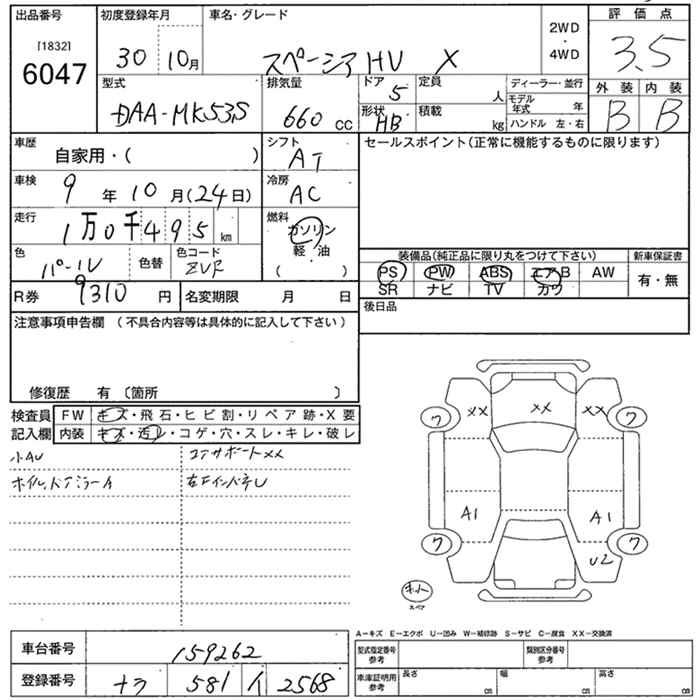 出品番号 初度登録年月 車名・グレード 評価点
[1832]
6047 30 10月 スペーシア HV X 2WD・4WD 3.5
型式 排気量 ドア 定員 ディーラー・並行 外装 内装
DAA-MK53S 660 CC 5 人 モデル年式 年 B B
形状 積載 ハンドル 左・右
HB kg
車歴 シフト セールスポイント(正常に機能するものに限ります)
自家用・( ) AT
車検 9年10月(24日) 冷房 AC
走行 燃料
1万0千495km ガソリン
軽・油
( )
色 色替 色コード 装備品(純品に限り丸をつけて下さい) 新車保証書
パール ZVR PS PW ABS エアB AW 有・無
SR ナビ TV カワ
R券 9310円 名変期限 月 日 後日品
注意事項申告欄 (不具合内容等は具体的に記入して下さい)
修復歴 有 〔箇所 〕
検査員記入欄 FW キズ・飛石・ヒビ割・リペア跡・X要
内装 キズ・汚レ・コゲ・穴・スレ・キレ・破レ
小AU コアサポートXX
ホイル、ドアミラーA 右Fインパネ U
XX XX XX
ワ ワ
A1 A1
ワ ワ
U2
スペア
A-キズ E-エクボ U-凹み W-補修跡 S-サビ C-腐食 XX-交換済
車台番号 159262 型式指定番号参考 類別区分番号参考
登録番号 ナラ 581 イ 2568 車庫証明用参考 長さ cm 幅 cm 高さ cm